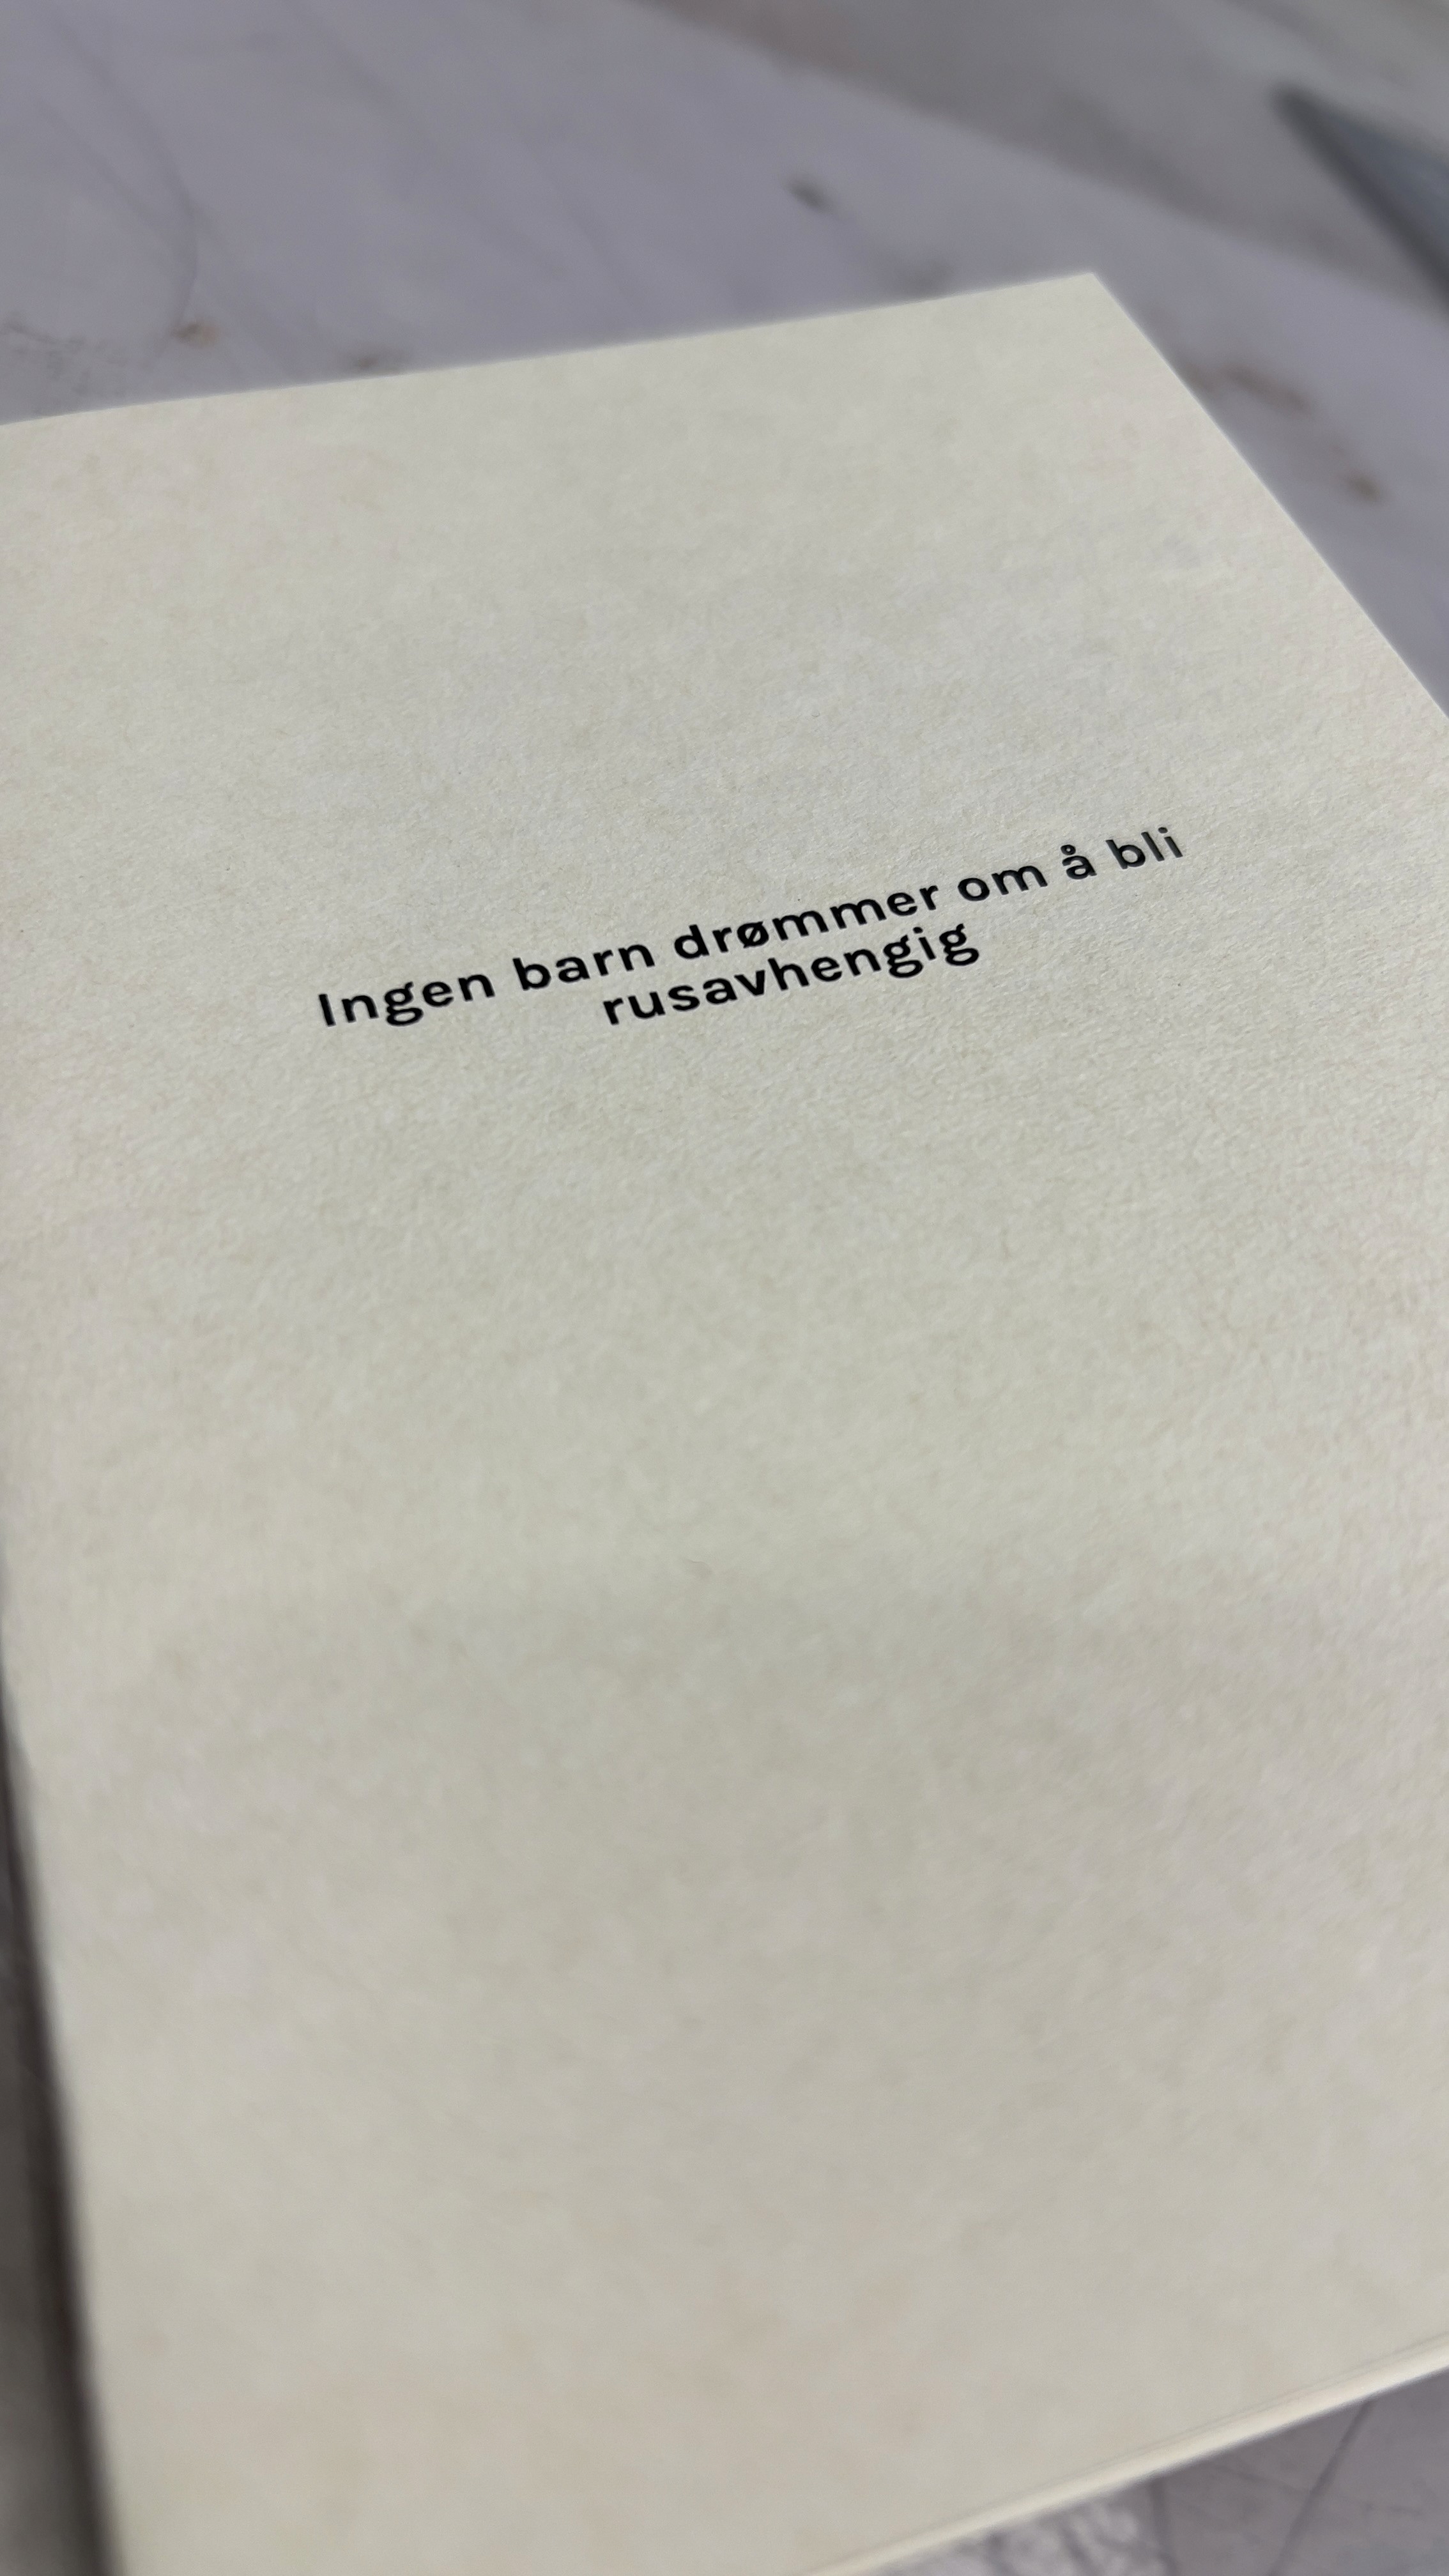 Ingen barn drømmer om å bli
rusavhengig